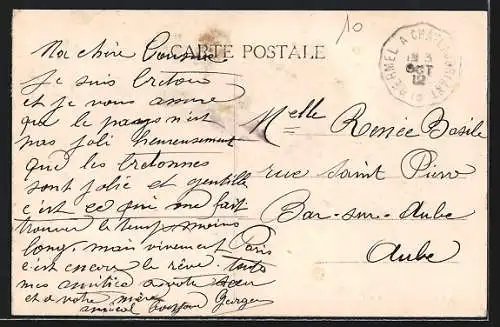 10
CARTE POSTALE
PLOERMEL A CHATEAUBRIANT
3
OCT
12
Ma chère Cousine
Je suis breton
et je vous assure
que le pays n'est
pas joli heureusement
que les bretonnes
sont jolie et gentille
c'est ce qui me fait
trouver le temps moins
long, mais vivement Paris
c'est encore le rêve. toutes
mes amitiés a votre sœur
et a votre mère
amical bonjour Georges
Melle Renée Basile
rue Saint Pierre
Bar-sur-Aube
Aube